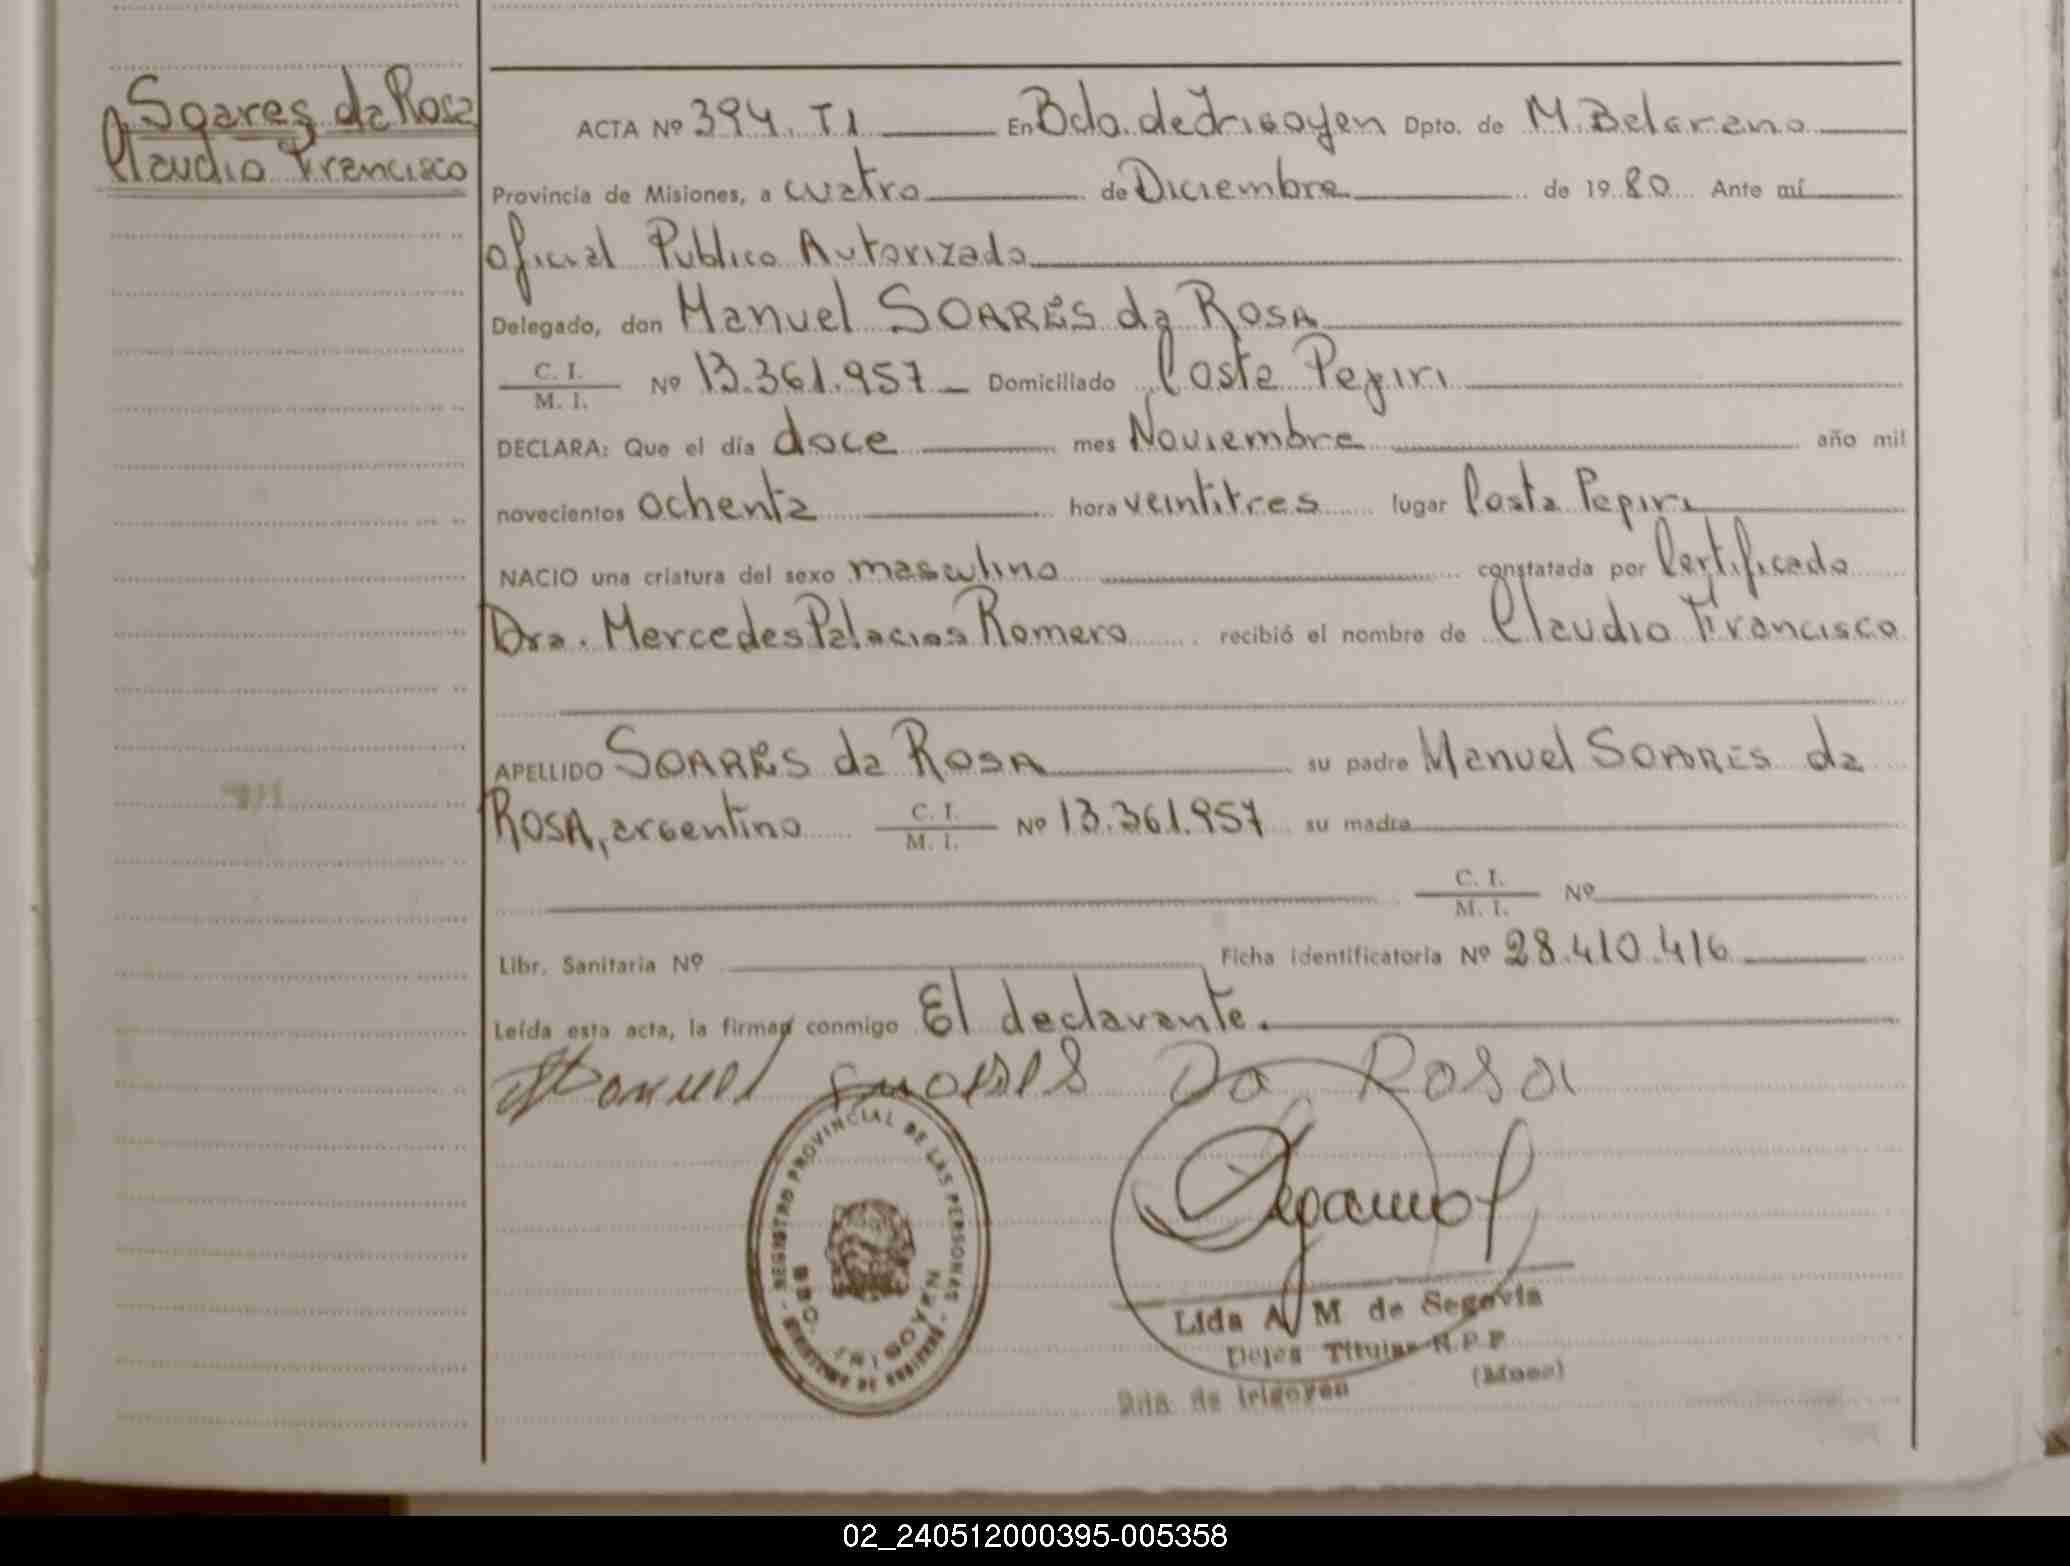 Soares da Rosa
Claudio Francisco
ACTA Nº 394. T I En Bdo. de Irigoyen Dpto. de M. Belgrano
Provincia de Misiones, a cuatro de Diciembre de 19 80 Ante mí
Oficial Publico Autorizado
Delegado, don Manuel SOARES da ROSA
C. I.
M. I. Nº 13.361.957 Domiciliado Costa Pepiri
DECLARA: Que el día doce mes Noviembre año mil
novecientos ochenta hora veintitres lugar Costa Pepiri
NACIO una criatura del sexo masculino constatada por Certificado
Dra. Mercedes Palacios Romero recibió el nombre de Claudio Francisco
APELLIDO SOARES da ROSA su padre Manuel SOARES da
ROSA, argentino C. I.
M. I. Nº 13.361.957 su madre
C. I.
M. I. Nº
Libr. Sanitaria Nº Ficha identificatoria Nº 28.410.416
Leída esta acta, la firman conmigo El declarante.
Manuel Da Rosa
REGISTRO PROVINCIAL DE LAS PERSONAS
BDO. IRIGOYEN
Lida A. M de Segovia
Titular R.P.P
Bdo. de Irigoyen (Mnes)
02_240512000395-005358